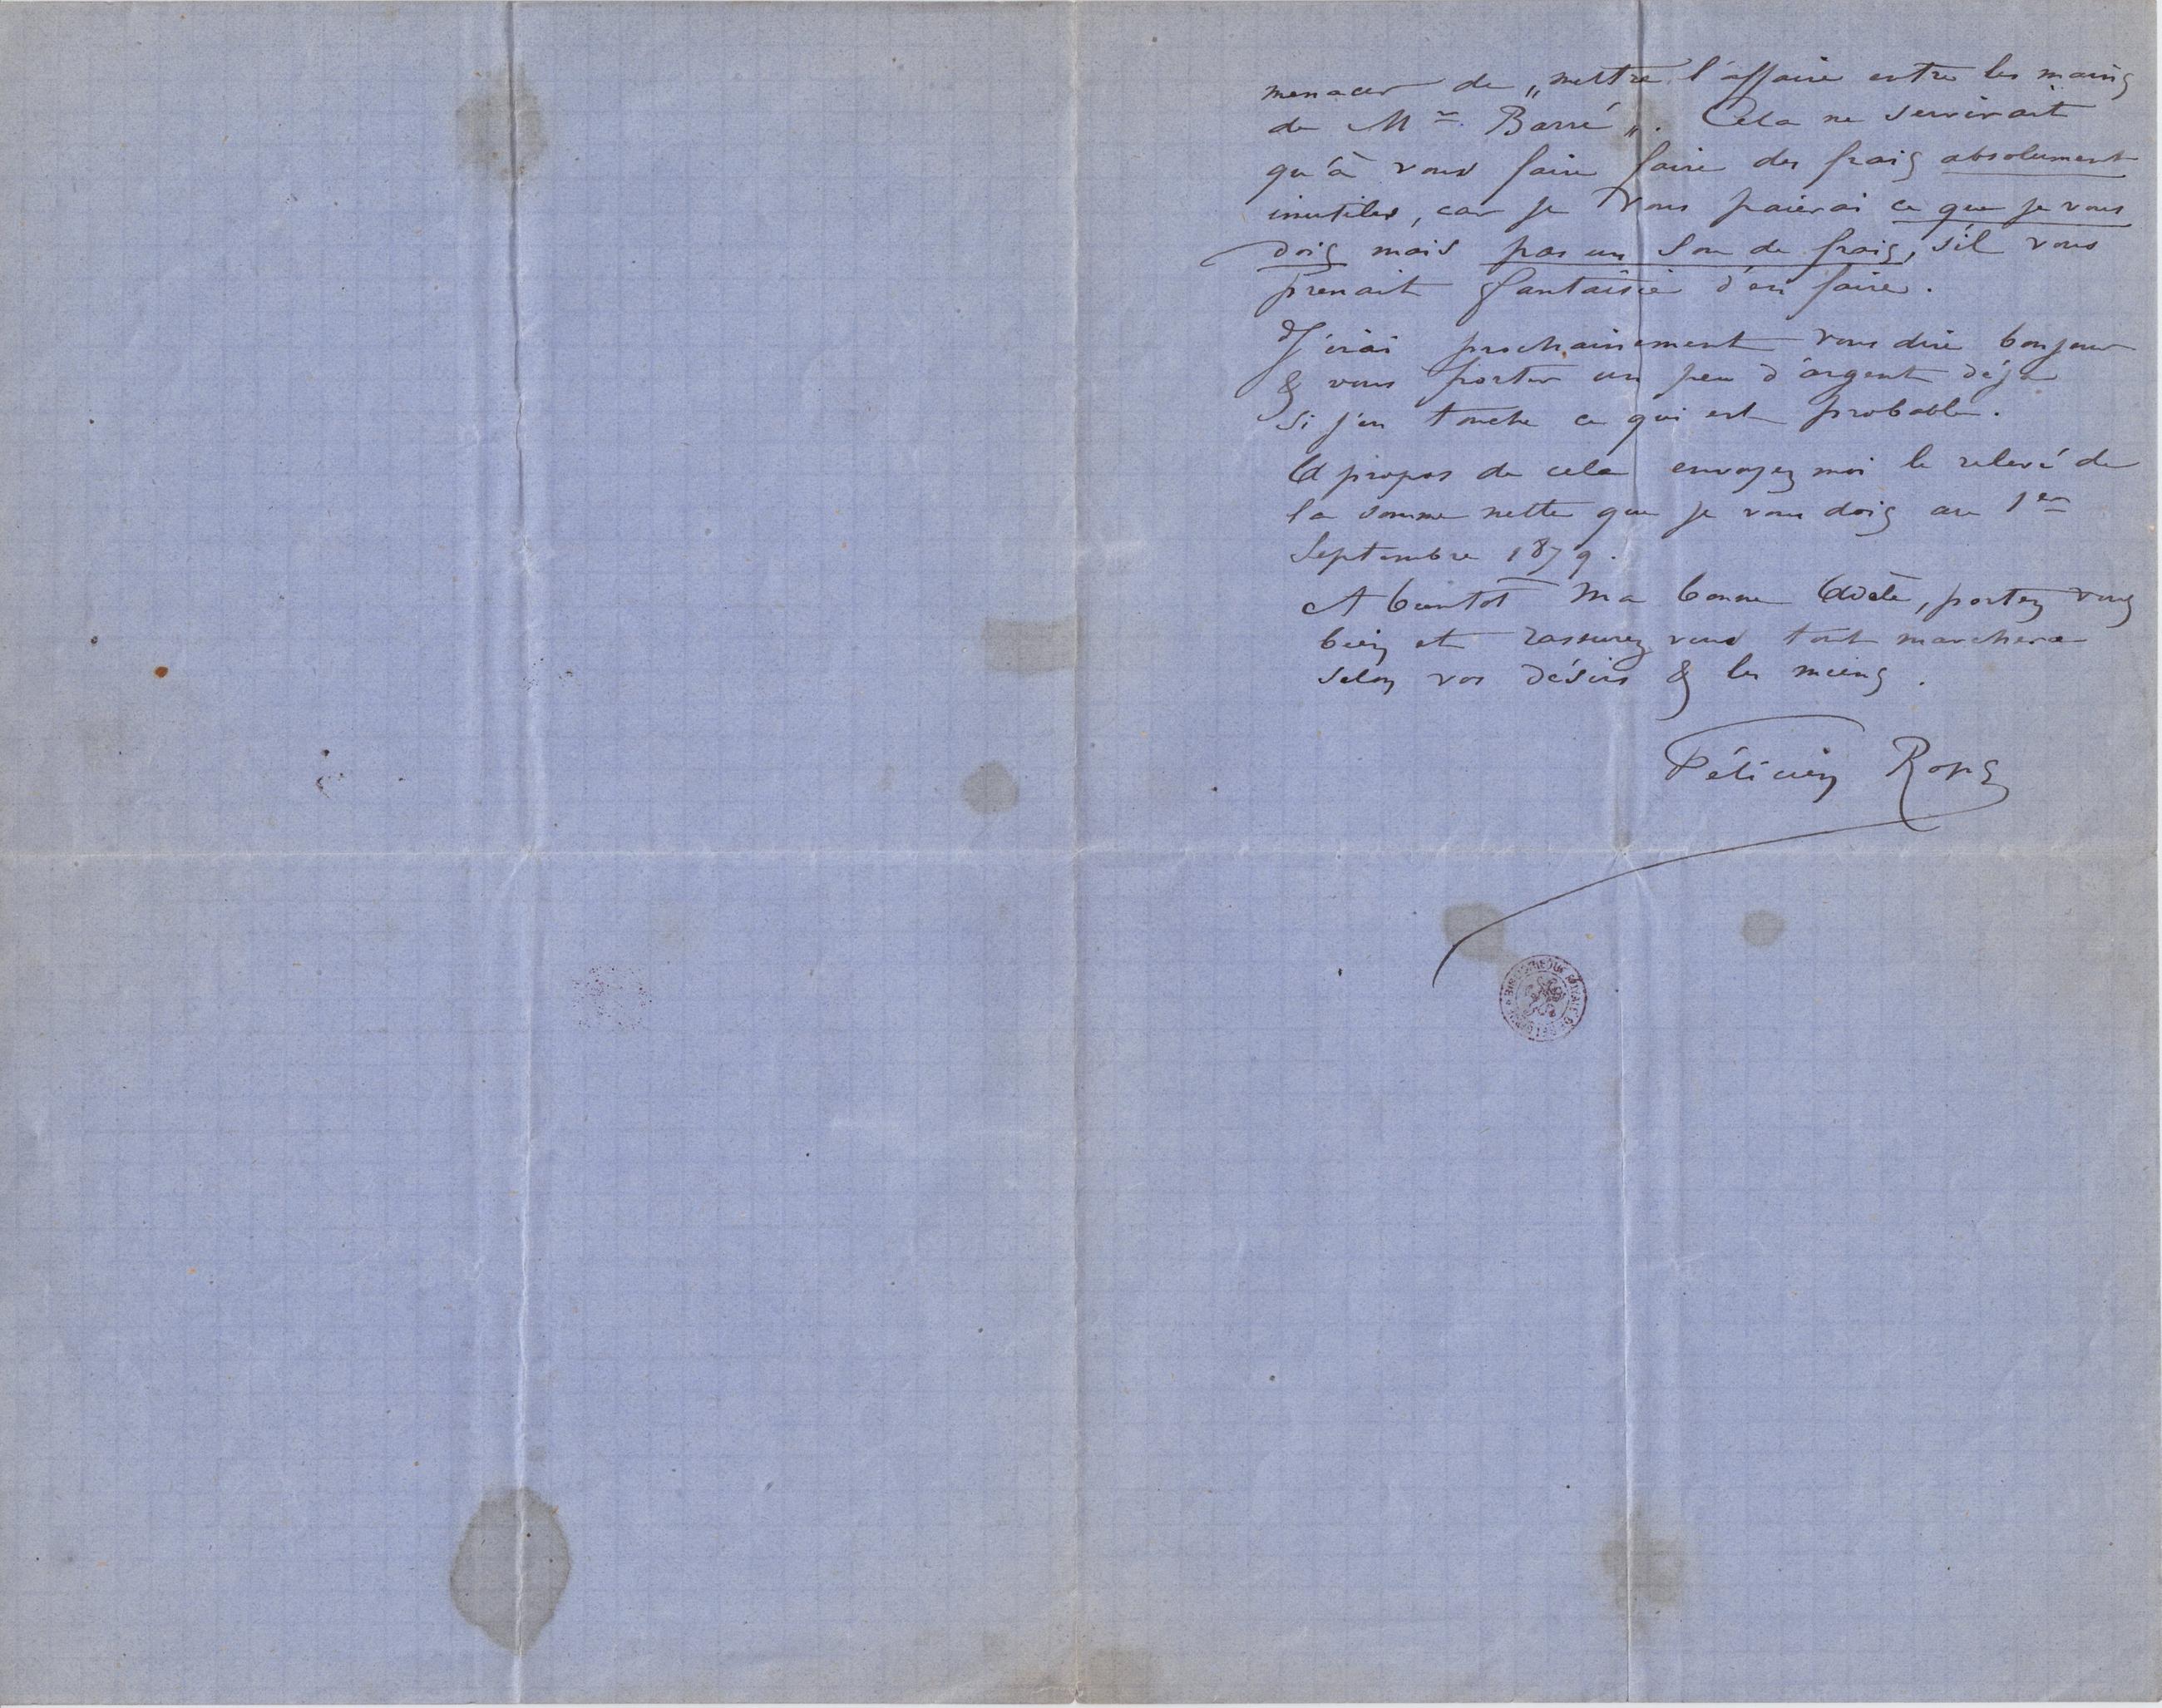 menacer de „mettre l'affaire entre les mains
de Mr. Barré„. Cela ne servirait
qu'à vous faire faire des frais absolument
inutiles, car je vous paierai ce que je vous
dois mais pas un sou de frais, s'il vous
prenait fantaisie d'en faire.
J'irai prochainement vous dire bonjour
& vous porter un peu d'argent déjà
si j'en touche ce qui est probable.
A propos de cela envoyez moi le relevé de
la somme nette que je vous dois au 1er
Septembre 1879.
A bientot ma bonne Adèle, portez vous
bien et rassurez vous tout marchera
selon vos désirs & les miens.
Félicien Rops
BIBLIOTHEQUE ROYALE DE BELGIQUE